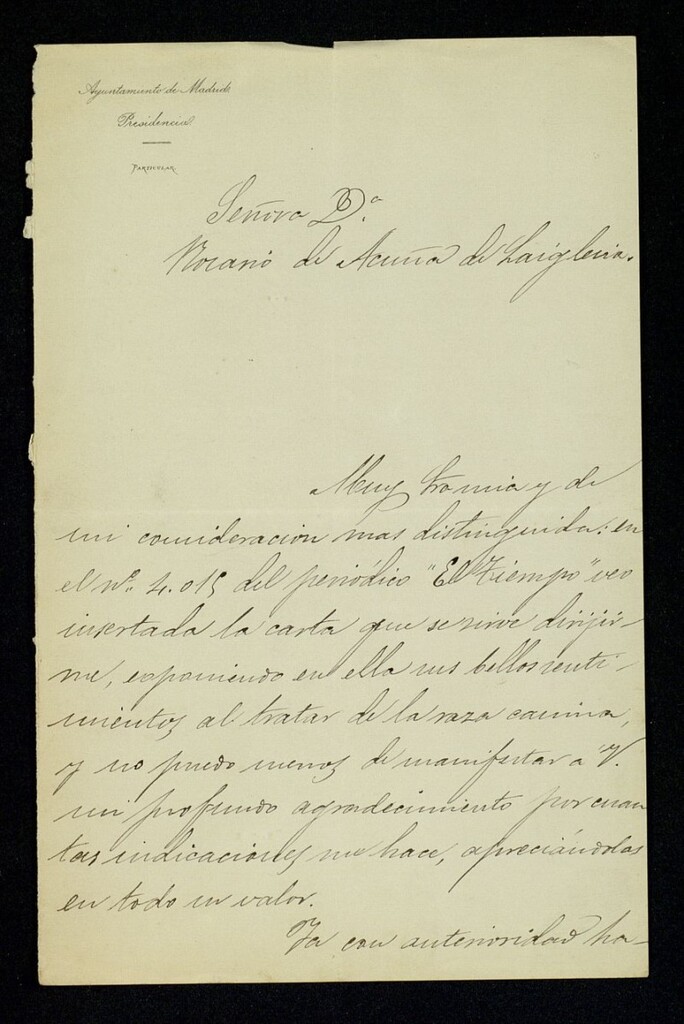 Ayuntamiento de Madrid
Presidencia
PARTICULAR
Señora D.ª
Rosario de Acuña de Laiglesia.
Muy Sra mia y de
mi consideracion mas distinguida: en
el nº 4.015 del periódico "El Tiempo" veo
insertada la carta que se sirve dirijir-
me, esponiendo en ella sus bellos senti-
mientos al tratar de la raza canina,
y no puedo menos de manifestar á V.
mi profundo agradecimiento por cuan
tas indicaciones me hace, apreciándolas
en todo su valor.
Ya con anterioridad ha-